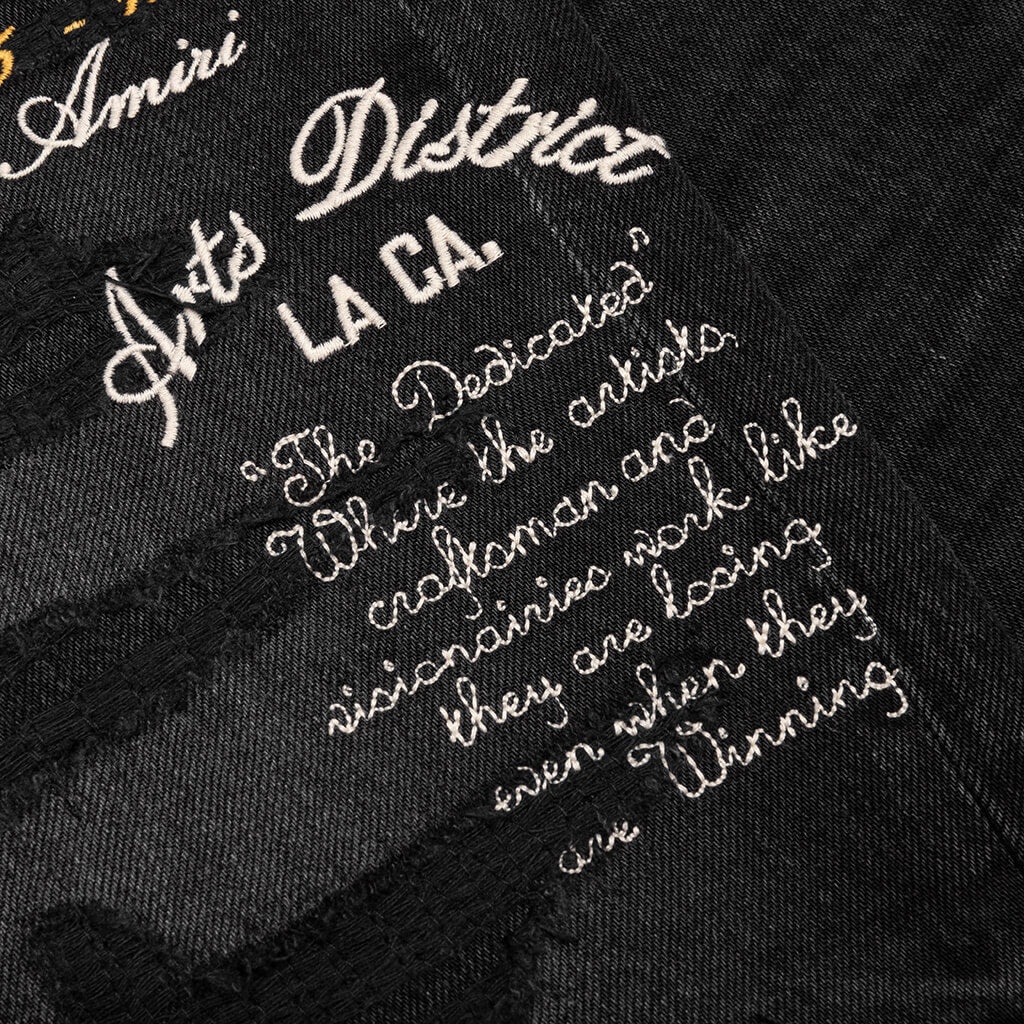 Amiri
Arts District
LA CA.
"The Dedicated"
Where the artists,
craftsman and
visionairies work like
they are losing
even when they
are Winning